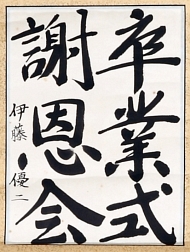 卒業式
謝恩会
伊藤優二